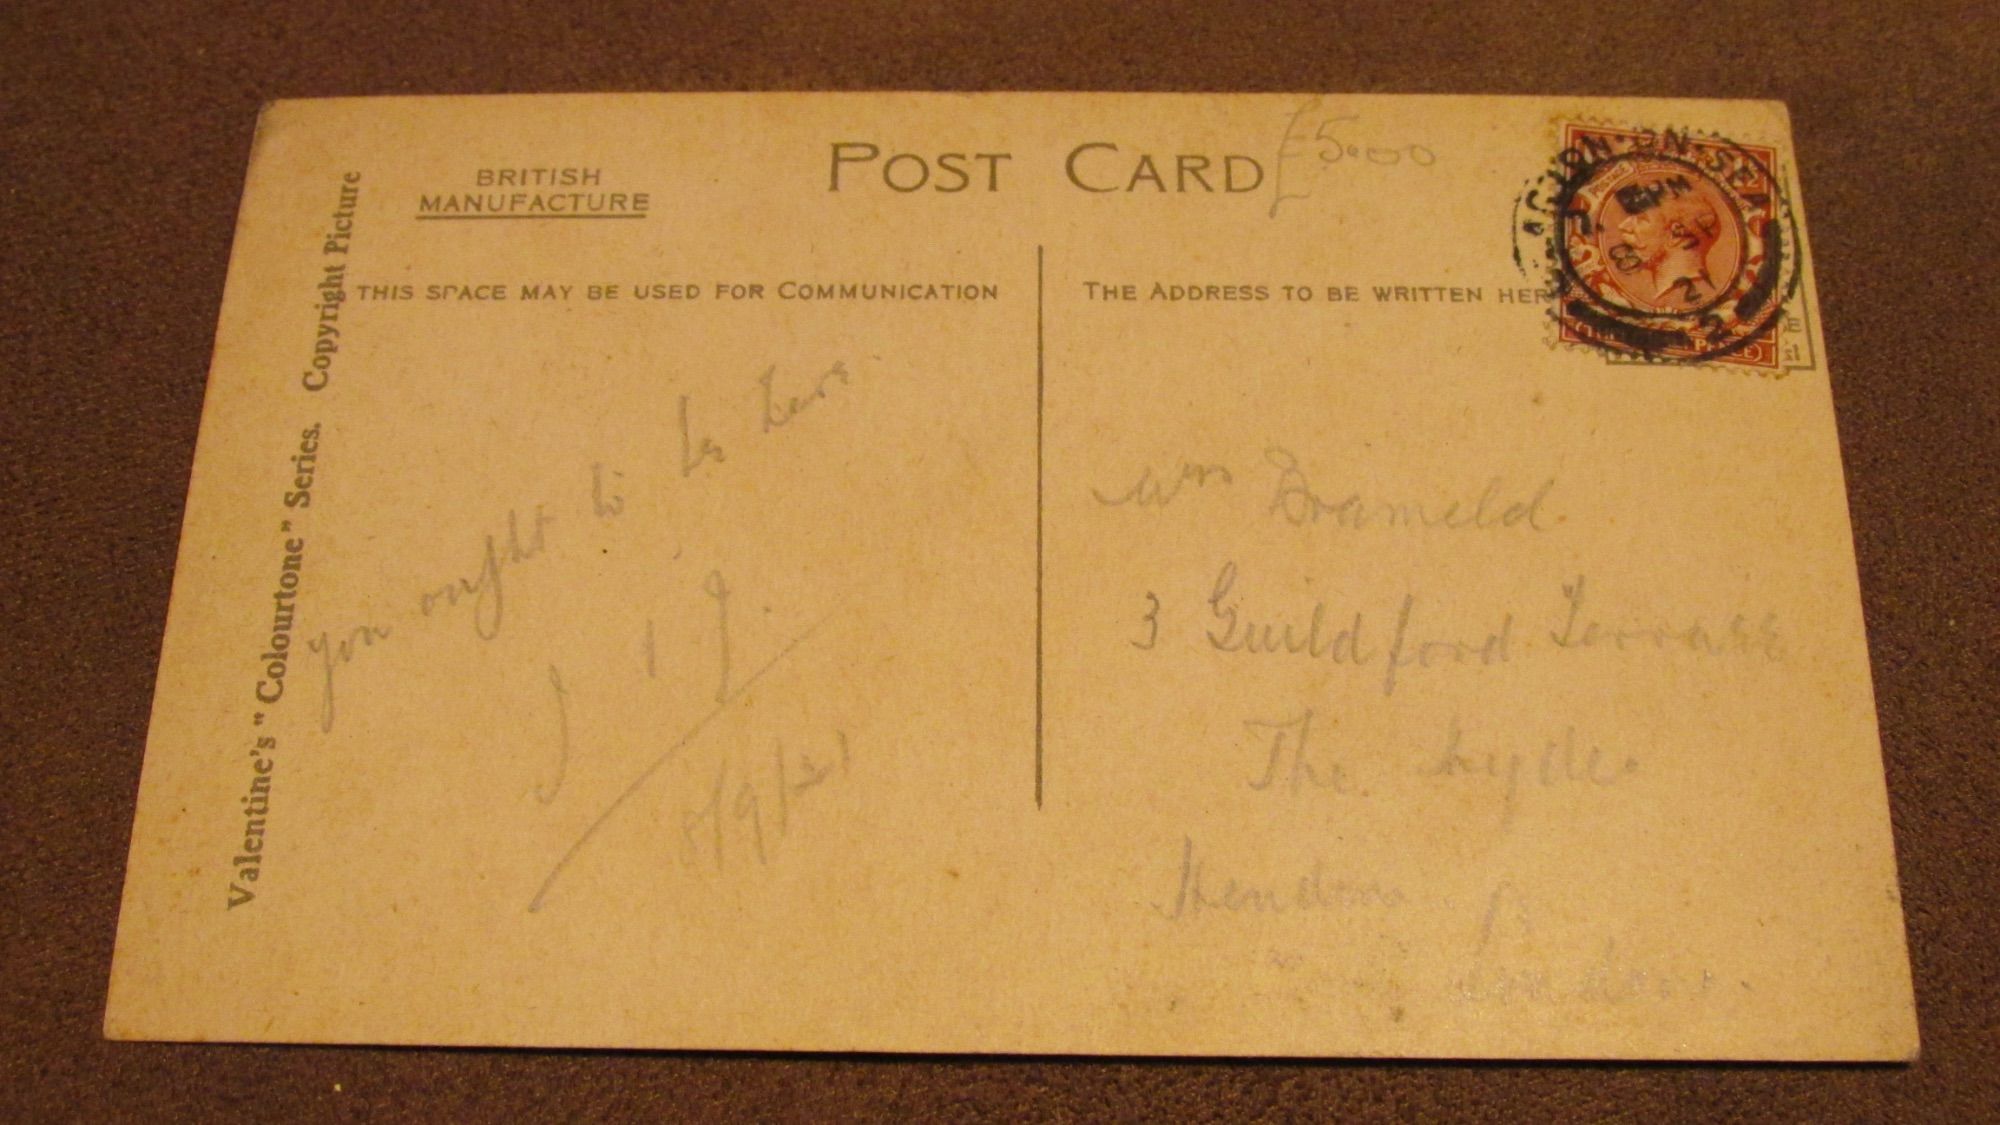 POST CARD
£5.00
BRITISH
MANUFACTURE
Valentine's "Colourtone" Series. Copyright Picture
THIS SPACE MAY BE USED FOR COMMUNICATION
THE ADDRESS TO BE WRITTEN HER
ON-SEA
PM
8 SP
21
you ought to be here.
J. J.
8/9/21
Mrs Brameld
3 Guildford Terrace
The Hyde
Hendon
London.